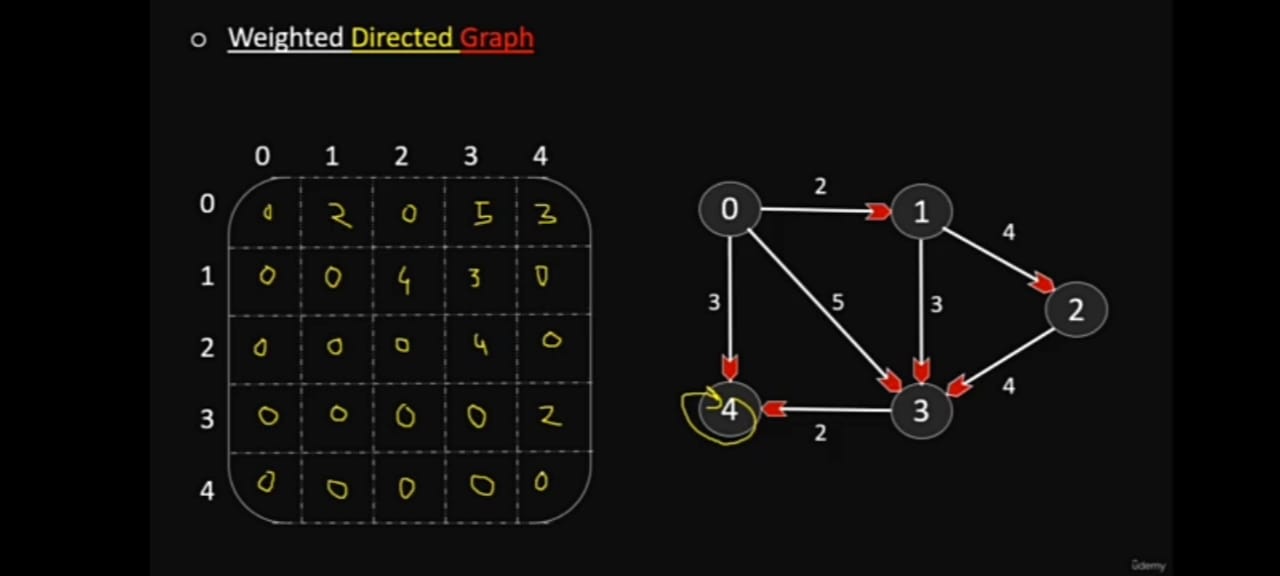 Weighted Directed Graph
0 1 2 3 4
0 0 2 0 5 3
1 0 0 4 3 0
2 0 0 0 4 0
3 0 0 0 0 2
4 0 0 0 0 0
2
0 1
4
3 5 3 2
4 3 4
2
ûdemy